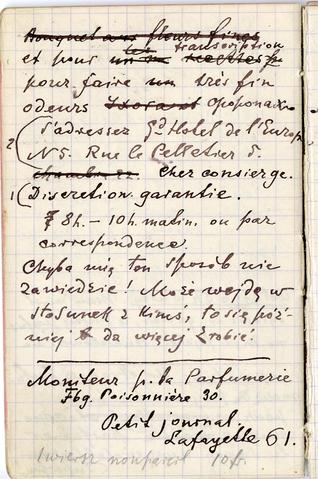 Bouquet aux fleurs fines
et pour un les transcription
pour faire un très fin
odeurs Ixora et Opoponax
2 (S'adresser Gd Hotel de l'Europe
No 5. Rue le Pelletier 5.
chambre 22. Chez consierge.
1 (Discretion garantie.
8 h. — 10 h. matin. ou par
correspondence.
Chyba mię ten sposób nie
zawiedzie! Może wejdę w
stosunek z kimś, to się póź-
niej da więcej zrobić!
Moniteur p. la Parfumerie
Fbg. Poissonnière 30.
Petit journal.
Lafayette 61.
1 wiersz nonpareil 10 fr.